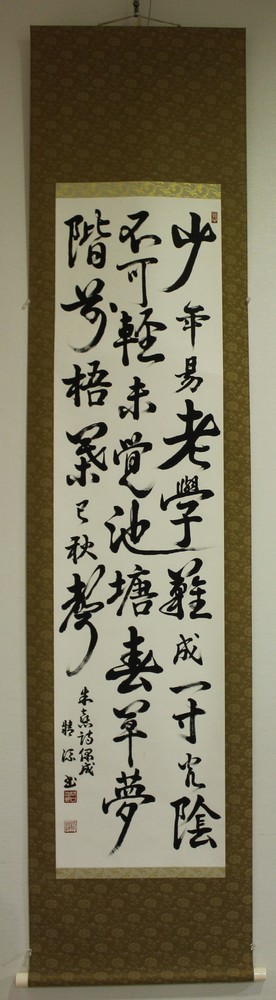 少年易老學難成一寸光陰
不可輕未覚池塘春草夢
階前梧葉已秋聲
朱熹詩
書